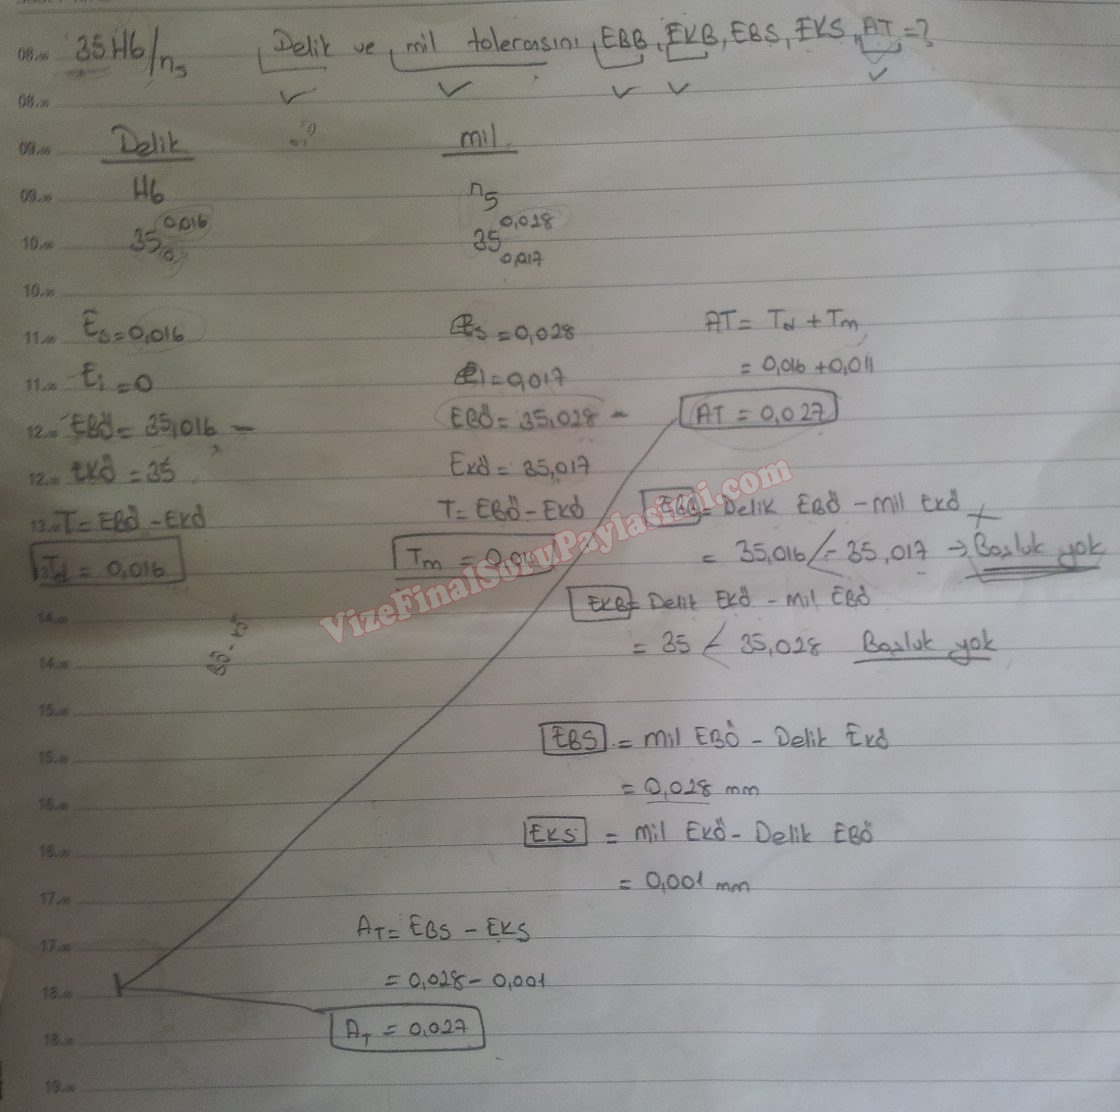 35 H6/n5 Delik ve mil tolerasını, EBB, EKB, EBS, EKS, AT=?
Delik mil
H6 n5
35 0,016 0 35 0,028 0,017
Es=0,016 es=0,028 AT= Td + Tm
Ei=0 ei=0,017 = 0,016+0,011
EBÖ= 35,016 EBÖ= 35,028 AT=0,027
EKÖ=35 EKÖ= 35,017
T=EBÖ-EKÖ T= EBÖ-EKÖ EBB= Delik EBÖ - mil EKÖ
Td = 0,016 Tm = = 35,016 < 35,017 → Boşluk yok
EKB= Delik EKÖ - mil EBÖ
= 35 < 35,028 Boşluk yok
EBS = mil EBÖ - Delik EKÖ
= 0,028 mm
EKS = mil EKÖ - Delik EBÖ
= 0,001 mm
AT= EBS - EKS
= 0,028 - 0,001
AT = 0.027
VizeFinalSoruPaylasimi.com
08.00
08.30
09.00
09.30
10.00
10.30
11.00
11.30
12.00
12.30
13.00
14.00
14.30
15.00
15.30
16.00
16.30
17.00
17.30
18.00
18.30
19.00